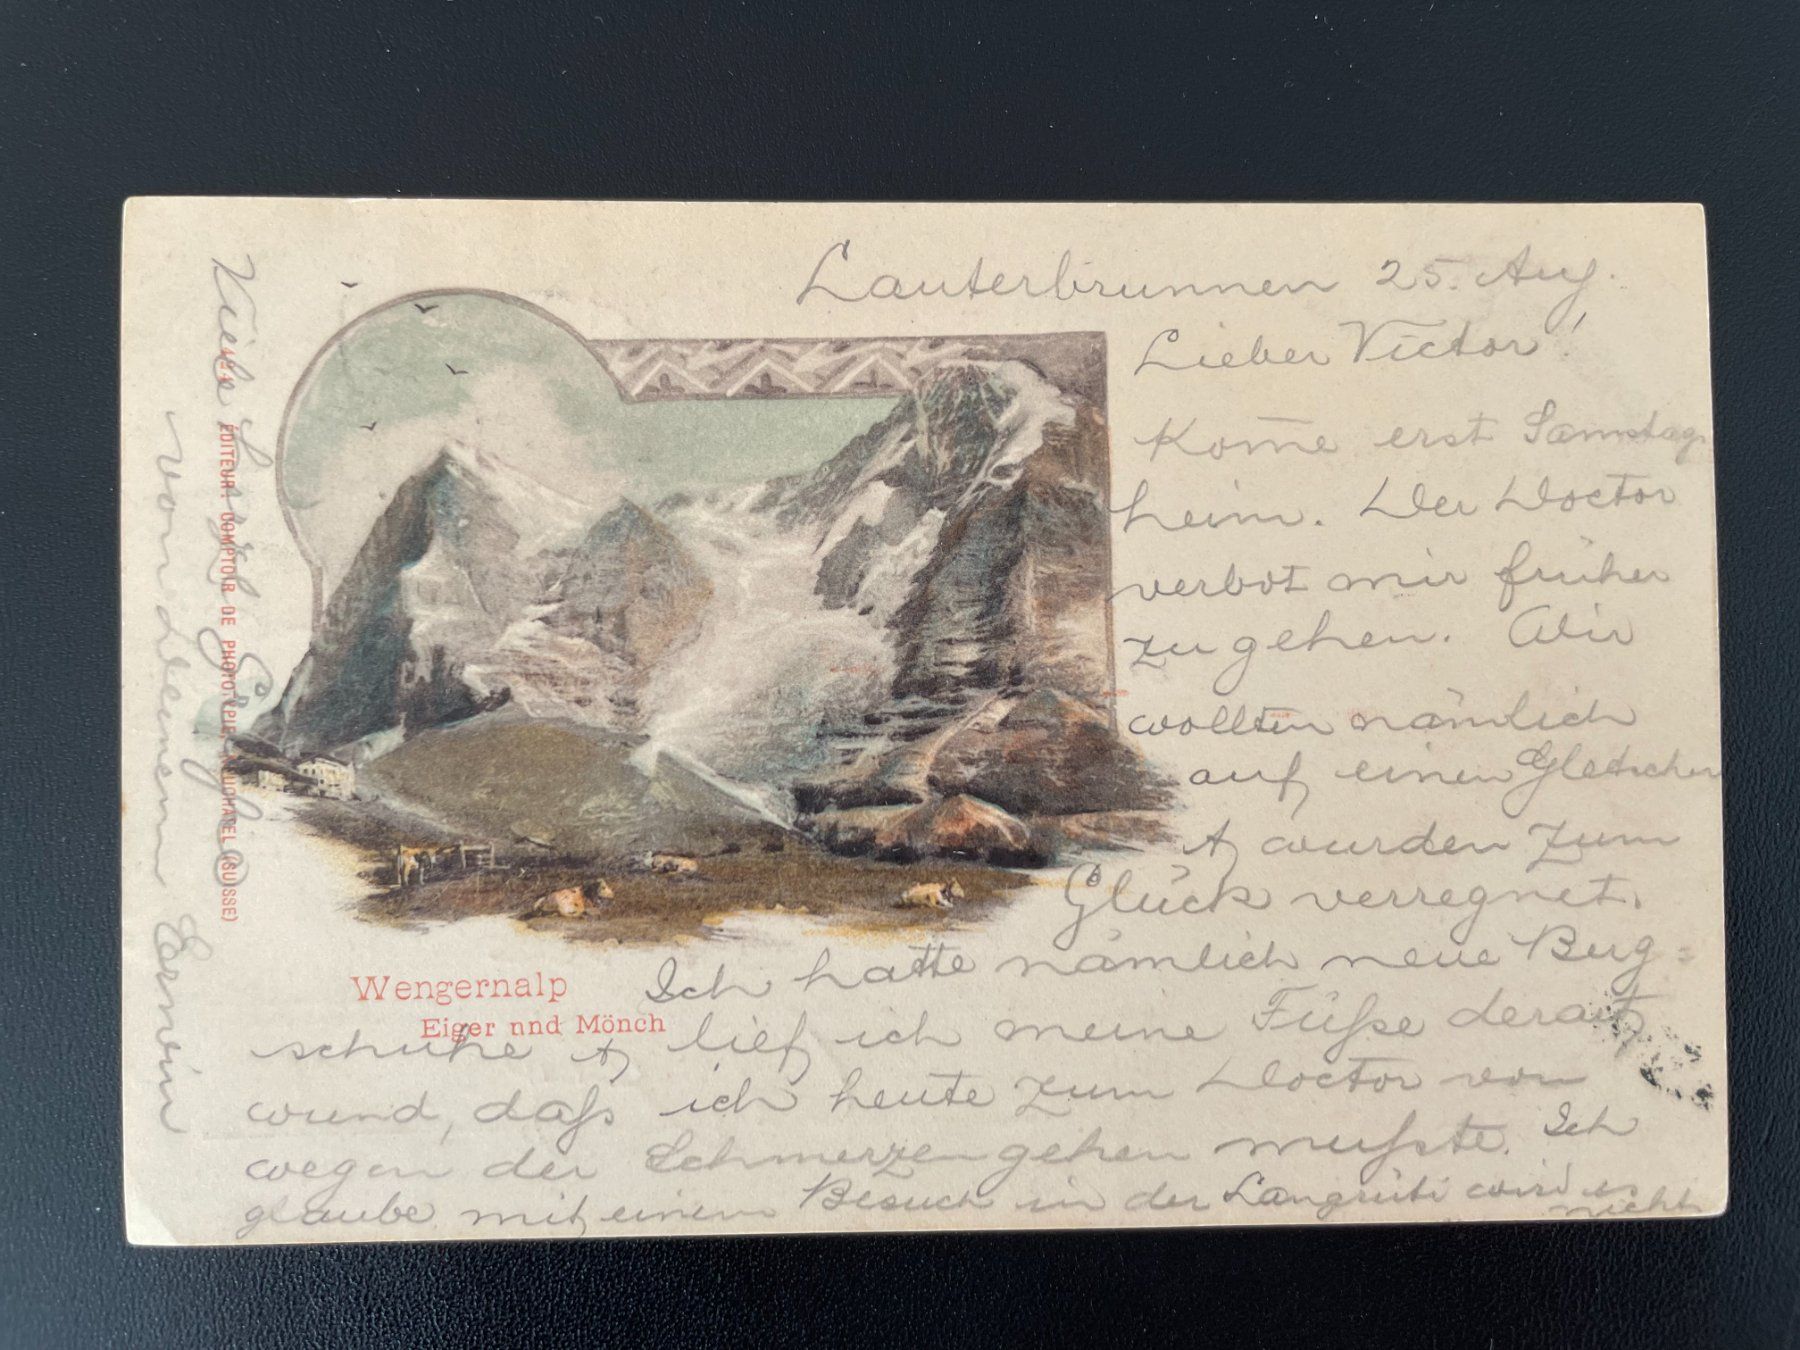 Lauterbrunnen 25. Aug.
Lieber Victor!
Kom̄e erst Samstag
heim. Der Doctor
verbot mir früher
zu gehen. Wir
wollten nämlich
auf einen Gletscher
& wurden zum
Glück verregnet.
Ich hatte nämlich neue Berg=
schuhe & lief ich meine Füße derart
wund, daß ich heute zum Doctor von
wegen der Schmerzen gehen mußte. Ich
glaube mit einem Besuch in der Langrüti wird es
nicht
Viele herzl Grüße
von deinem Erwin
Wengernalp
Eiger nnd Mönch
ÉDITEUR. COMPTOIR DE PHOTOTYPIE, NEUCHATEL (SUISSE)